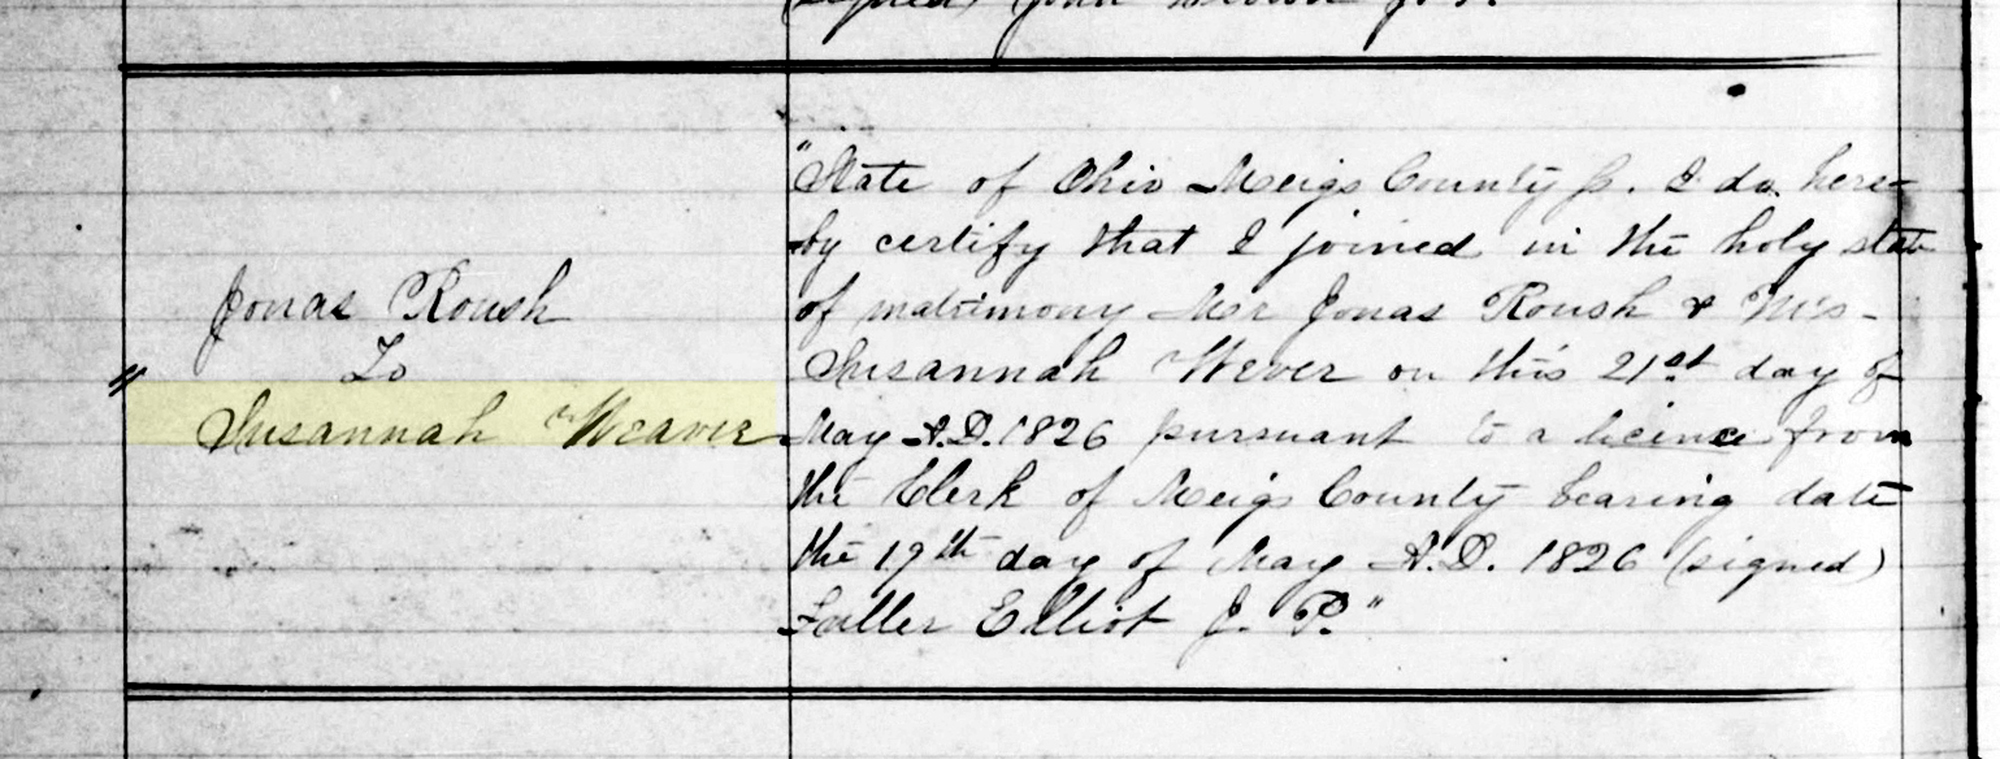 (signed) John Brown J. P.
Jonas Roush
To
Susannah Weaver
"State of Ohio Meigs County ss. I do here-
by certify that I joined in the holy state
of matrimony Mr Jonas Roush & Miss
Susannah Wever on this 21st day of
May A.D. 1826 pursuant to a licence from
the Clerk of Meigs County bearing date
the 19th day of May A.D. 1826 (signed)
Fuller Elliot J. P."